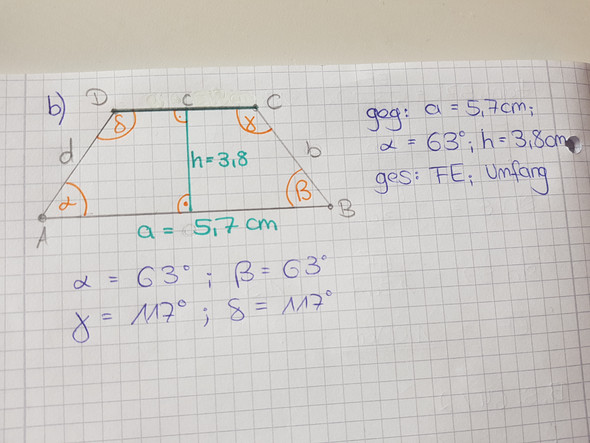 b)
D c C
δ γ
d h=3,8 b
α β
A B
a = 5,7 cm
geg: a = 5,7cm;
α = 63°; h = 3,8cm
ges: FE; Umfang
α = 63°; β = 63°
γ = 117°; δ = 117°